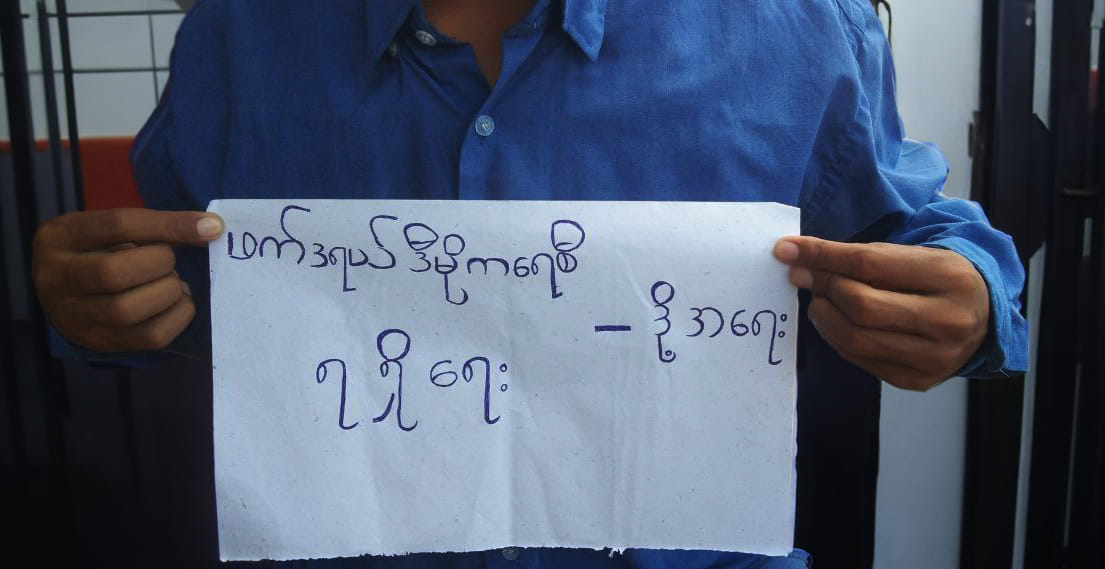 ဖက်ဒရယ် ဒီမိုကရေစီ
ရရှိရေး
– ဒို့အရေး